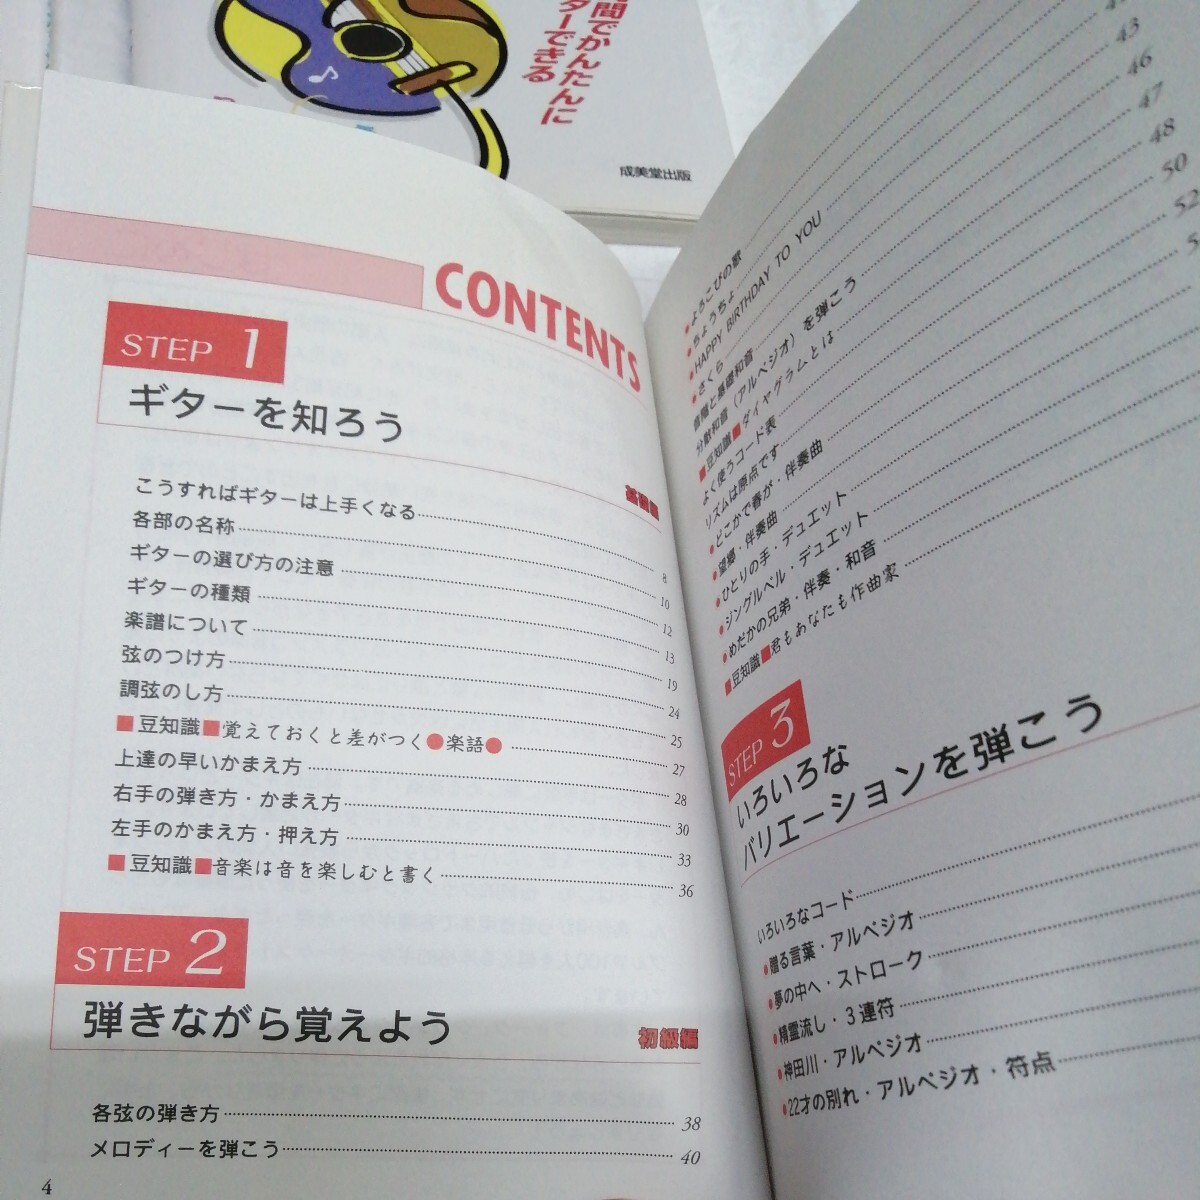 間でかんたんに
ターできる
成美堂出版
CONTENTS
STEP 1
ギターを知ろう
基礎編
こうすればギターは上手くなる 8
各部の名称 10
ギターの選び方の注意 12
ギターの種類 13
楽譜について 19
弦のつけ方 24
調弦のし方 25
■豆知識■覚えておくと差がつく●楽語● 27
上達の早いかまえ方 28
右手の弾き方・かまえ方 30
左手のかまえ方・押え方 33
■豆知識■音楽は音を楽しむと書く 36
STEP 2
弾きながら覚えよう
初級編
各弦の弾き方 38
メロディーを弾こう 40
4
●よろこびの歌
●ちょうちょ 43
●HAPPY BIRTHDAY TO YOU 46
●さくら 47
音階と基礎和音 48
分散和音(アルペジオ)を弾こう 50
■豆知識■ダイヤグラムとは 52
よく使うコード表
リズムは原点です
●どこかで春が・伴奏曲
●望郷・伴奏曲
●ひとりの手・デュエット
●ジングルベル・デュエット
●めだかの兄弟・伴奏・和音
■豆知識■君もあなたも作曲家
STEP 3
いろいろな
バリエーションを弾こう
いろいろなコード
●贈る言葉・アルペジオ
●夢の中へ・ストローク
●精霊流し・3連符
●神田川・アルペジオ
●22才の別れ・アルペジオ・符点